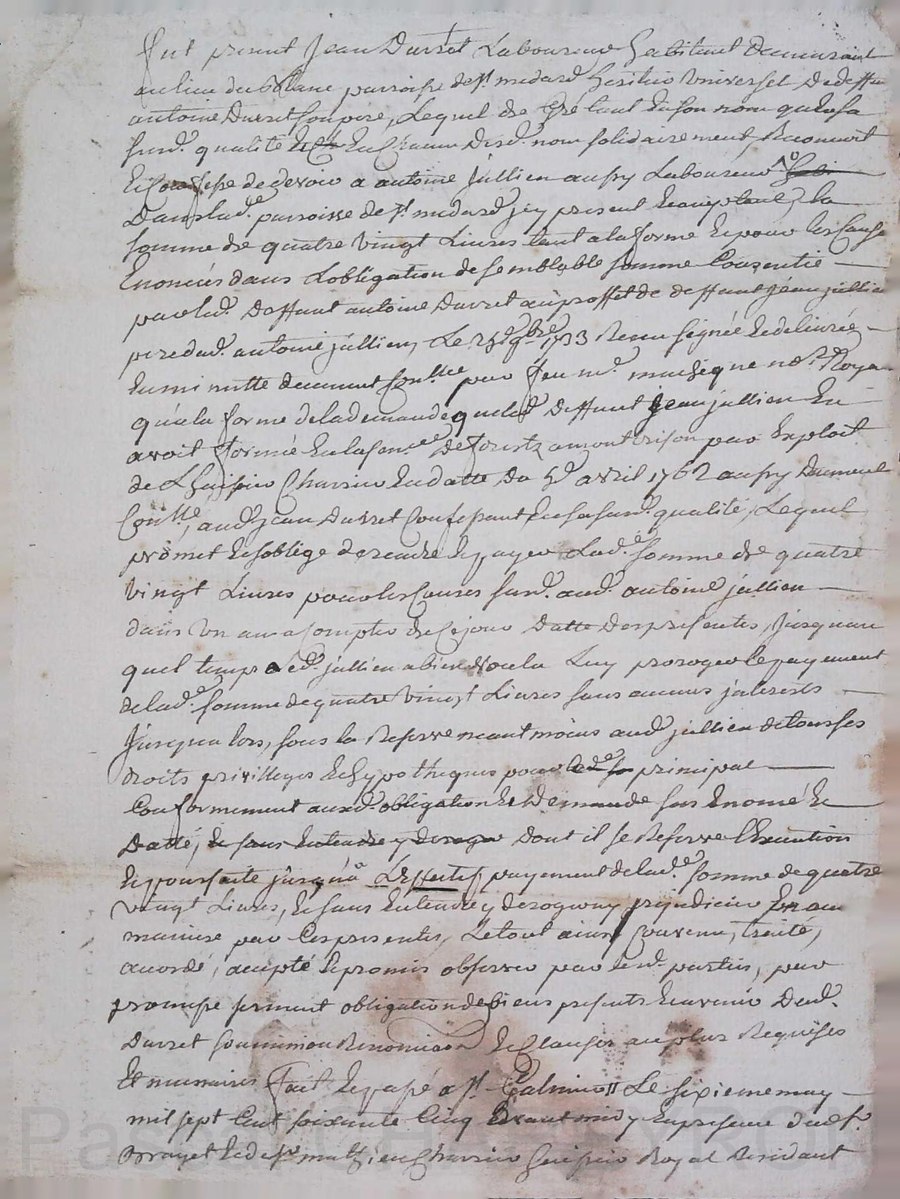 fut present Jean Durret Laboureur habitant demeurant
au lieu du blanc parroisse de st. medard heritier universel de deffun
antoine Durret son pere, Lequel de gré tant en son nom qu'en sa
susd. qualité et en chacun desd. noms solidairement Reconnoit
et confesse de devoir a antoine jullien aussy Laboureur
Dans lad.e parroisse de st. medard, jcy present et acceptant, la
somme de quatre vingt Livres tant a la forme et pour les causes
Enoncées dans L'obligation de semblable somme Consentie
par led. Deffunt antoine Durret au proffit de deffunt jean jullien
pere dud. antoine jullien, Le 9bre 1733 Receu signée et delivrée
en minutte deuement Con.llée par feu m.e not.e Royal
qu'a la forme de la demande que led. Deffunt jean jullien en
avoit formée en la sen.ée De forests a montbrison par Exploit
de L'huissier Charrier en datte Du avril 1762 aussy duement
Con.llé, aud. jean Durret Confessant en sa susd. qualité, Lequel
promet et s'oblige de rendre et payer Lad.e somme de quatre
vingt Livres pour les causes susd. aud. antoine jullien
dans un an a compter de ce jour Datte des presentes, jusqu'au
quel temps led. jullien a bien voulu Luy proroger le payement
de lad.e somme de quatre vingt Livres sans aucuns jnterests
jusqu'alors, sous la Reserve neantmoins aud. jullien de tous ses
droits privilleges et hypotheques pour principal
Conformement auxd. obligation et Demande sus Enoncé et
Datté, et sans entendre y deroger dont il se Reserve l'Execution
et poursuite jusqu'a L'effectif payement de lad.e somme de quatre
vingt Livres, et sans entendre y deroger ny prejudicier en au
maniere par ces presentes, Le tout ainsi Convenu, traité,
accordé, accepté et promis observer par lesd. parties, par
promesse serment obligation de biens presents et avenir Dud.
Durret soummission Renonciaon et Clauses au plus Requises
Et necessaires fait et passé a st. Galmier Le sixieme may
mil sept cent soixante cinq avant midy en presence du sr.
Brayet et de sr. mathieu Charrier huissier Royal Residant
Pascal CHA EYRON